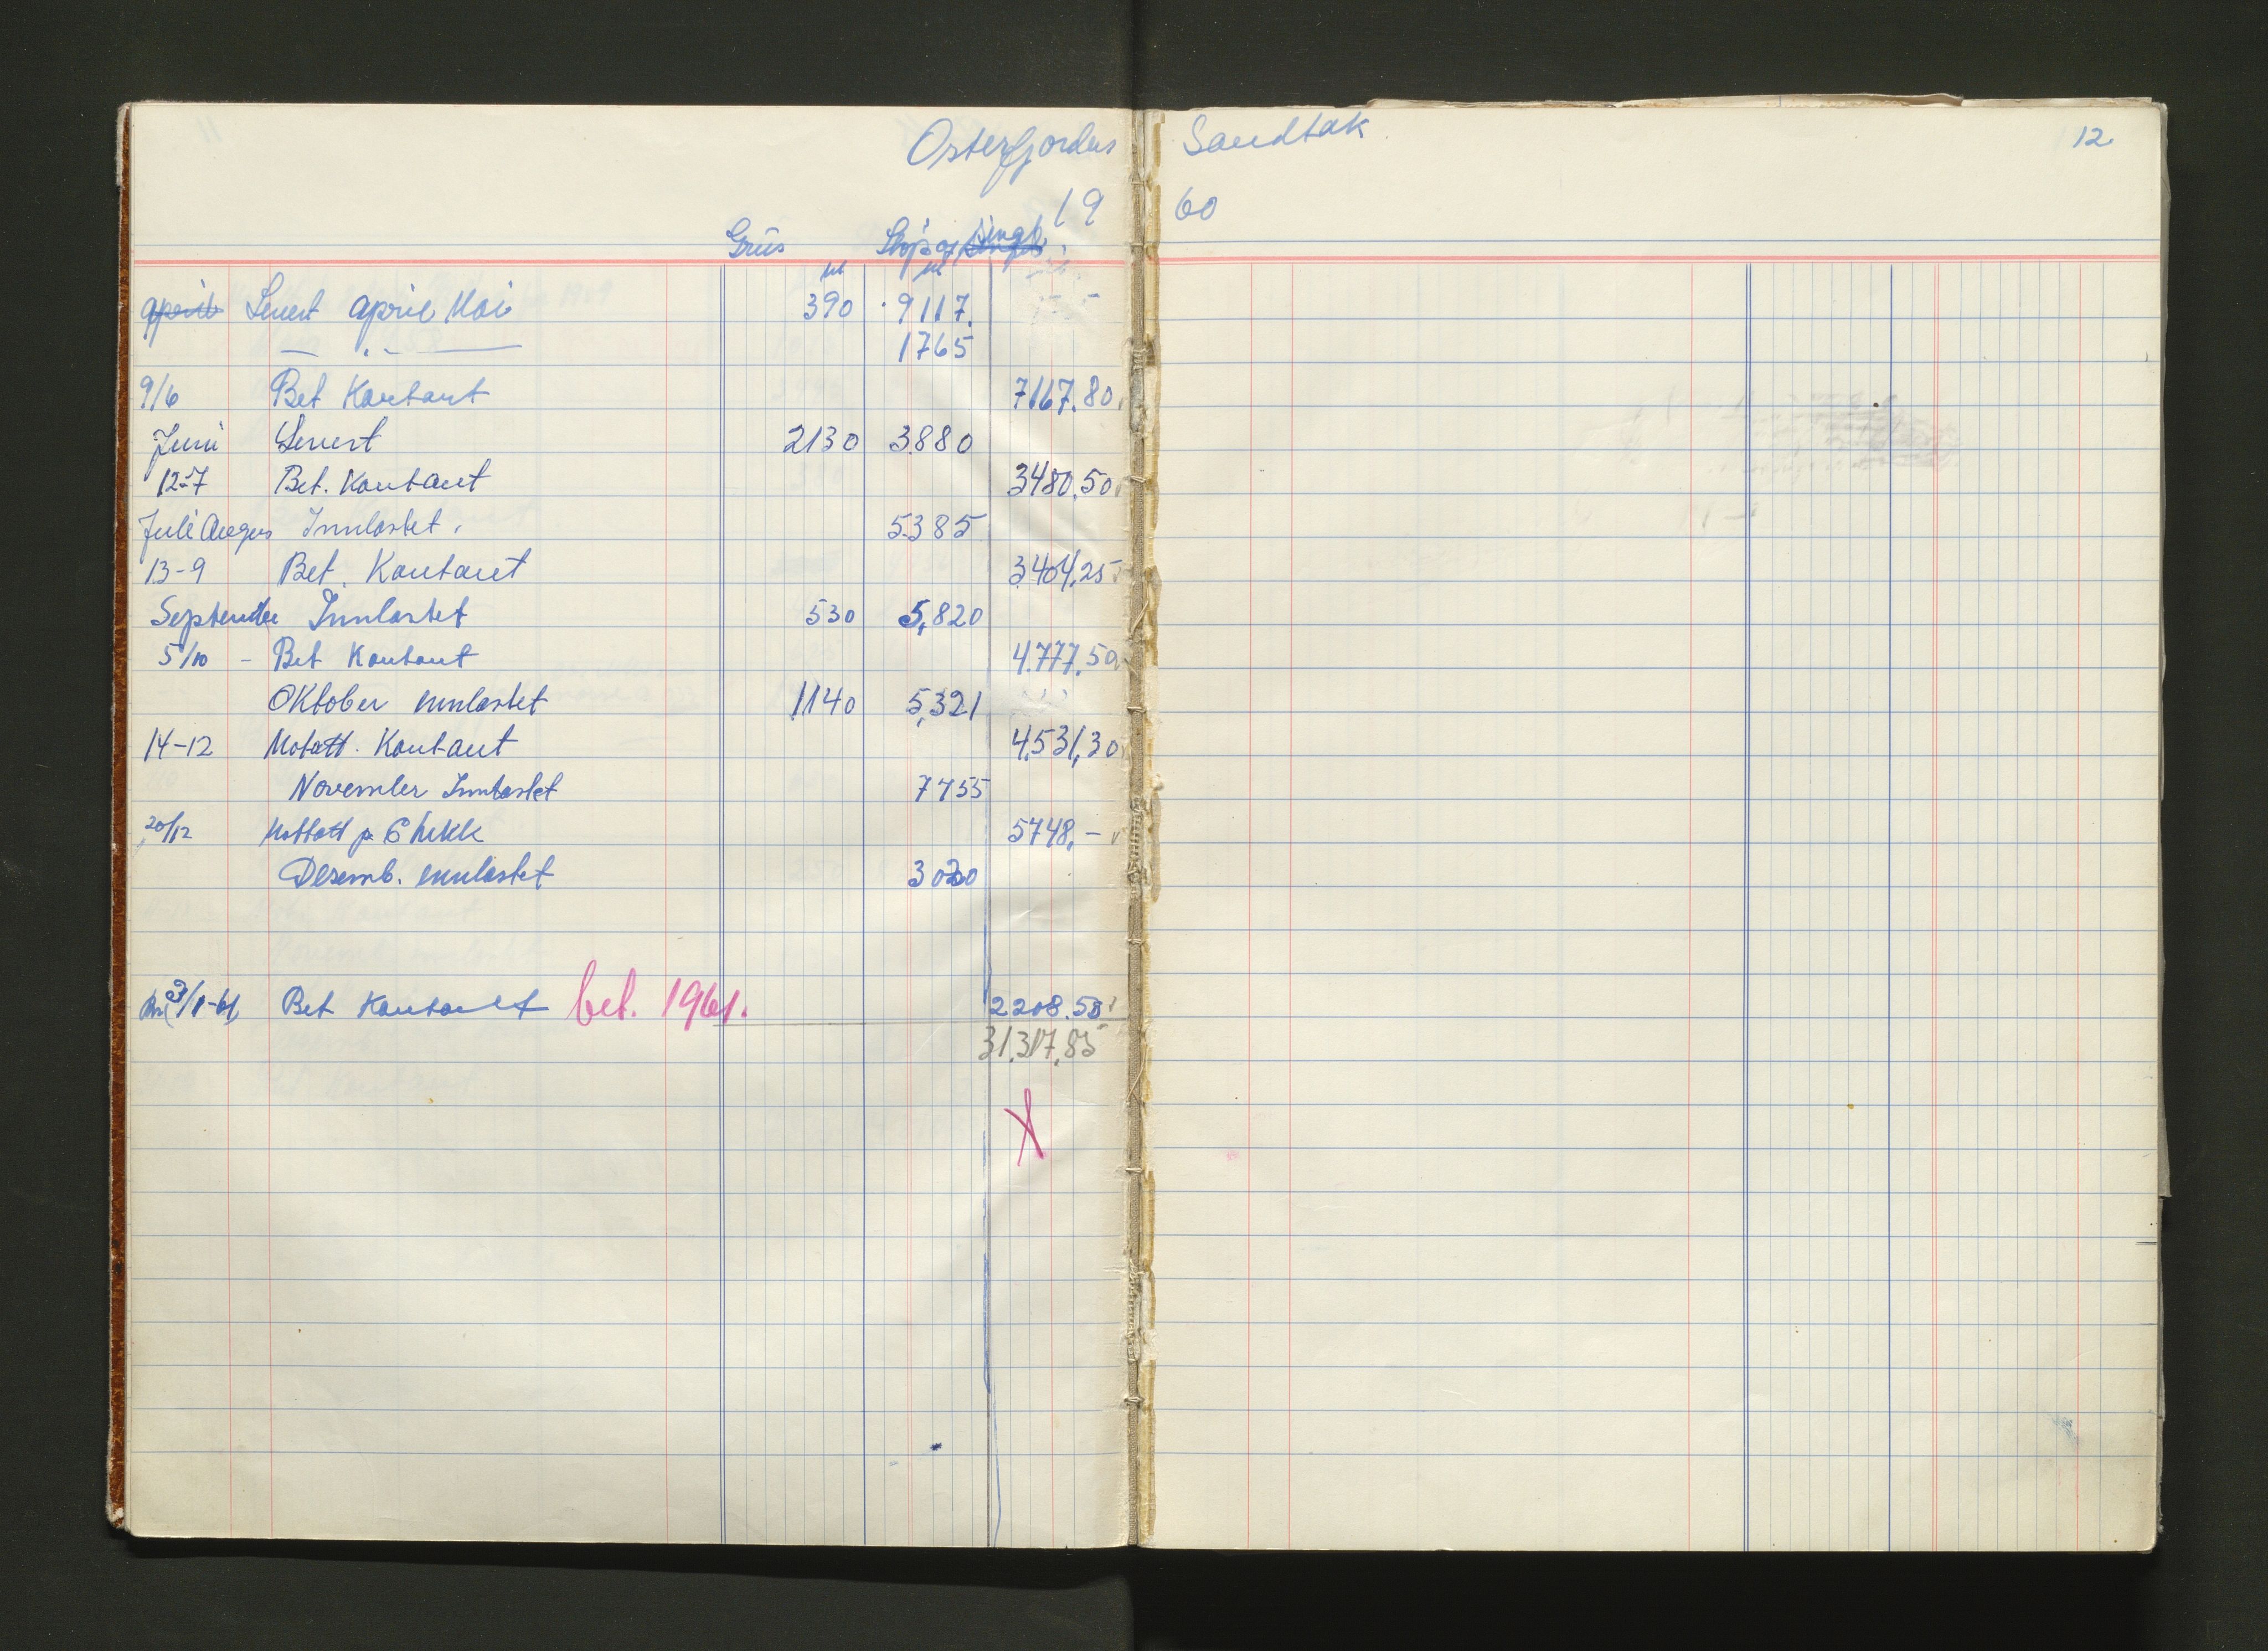 Osterfjordens Sandtak 12
1960
Grus Støp og singel
april Levert april Mai 390 9117
1765
9/6 Bet Kontant 7167.80
Juni Levert 2130 3880
12-7 Bet. Kontant 3480.50
Juli Augus Innlastet 5385
13-9 Bet. Kontant 3404,25
September Innlastet 530 5,820
5/10 - Bet Kontant 4.777.50
Oktober innlastet 1140 5,321
14-12 Motatt. Kontant 4,531,30
November Innlastet 7755
20/12 Mottatt p. Chekk 5748,-
Desemb. innlastet
3/1-61 Bet Kontant bet. 1961. 2208.50
31.317,85
X